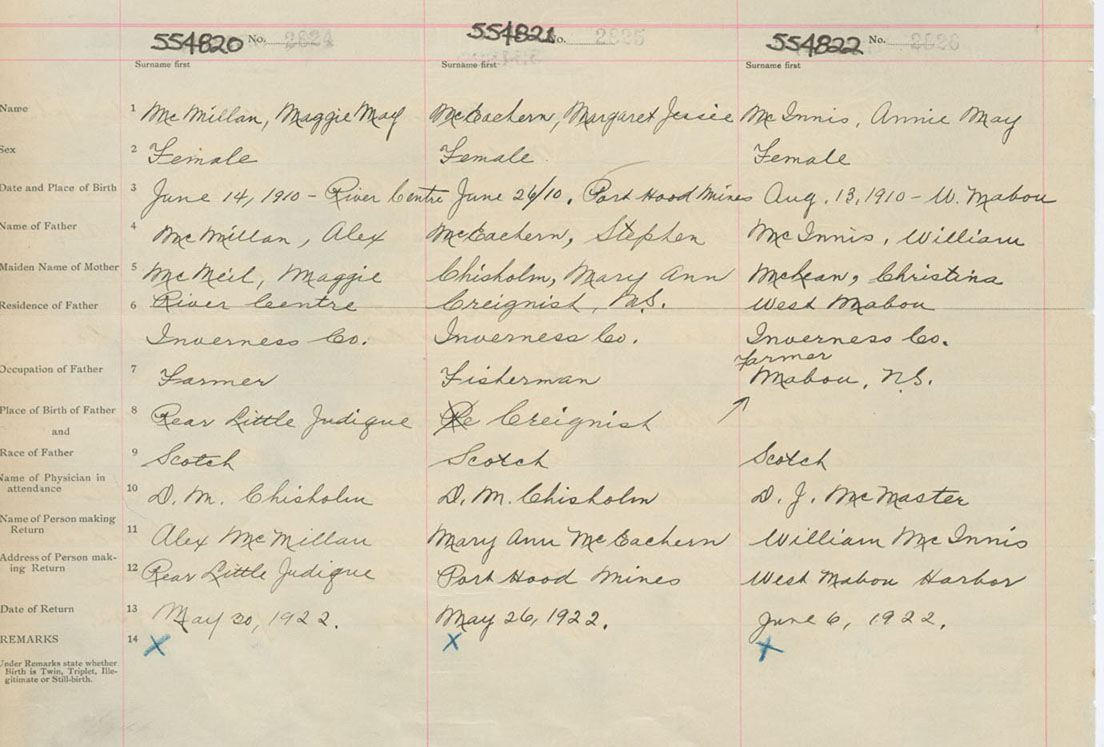 554820 No. 2824 554821 No. 2825 554822 No. 2826
Surname first Surname first Surname first
Name 1 McMillan, Maggie May McEachern, Margaret Jessie McInnis, Annie May
Sex 2 Female Female Female
Date and Place of Birth 3 June 14, 1910 - River Centre June 26/10, Port Hood Mines Aug. 13, 1910 - W. Mabou
Name of Father 4 McMillan, Alex McEachern, Stephen McInnis, William
Maiden Name of Mother 5 McNeil, Maggie Chisholm, Mary Ann McLean, Christina
Residence of Father 6 River Centre Creignish, N.S. West Mabou
Inverness Co. Inverness Co. Inverness Co.
Farmer
Occupation of Father 7 Farmer Fisherman Mabou, N.S.
Place of Birth of Father 8 Rear Little Judique Creignish
and
Race of Father 9 Scotch Scotch Scotch
Name of Physician in
attendance 10 D. M. Chisholm D. M. Chisholm D. J. McMaster
Name of Person making
Return 11 Alex McMillan Mary Ann McEachern William McInnis
Address of Person mak-
ing Return 12 Rear Little Judique Port Hood Mines West Mabou Harbor
Date of Return 13 May 30, 1922. May 26, 1922. June 6, 1922.
REMARKS 14 X X X
Under Remarks state whether
Birth is Twin, Triplet, Ille-
gitimate or Still-birth.